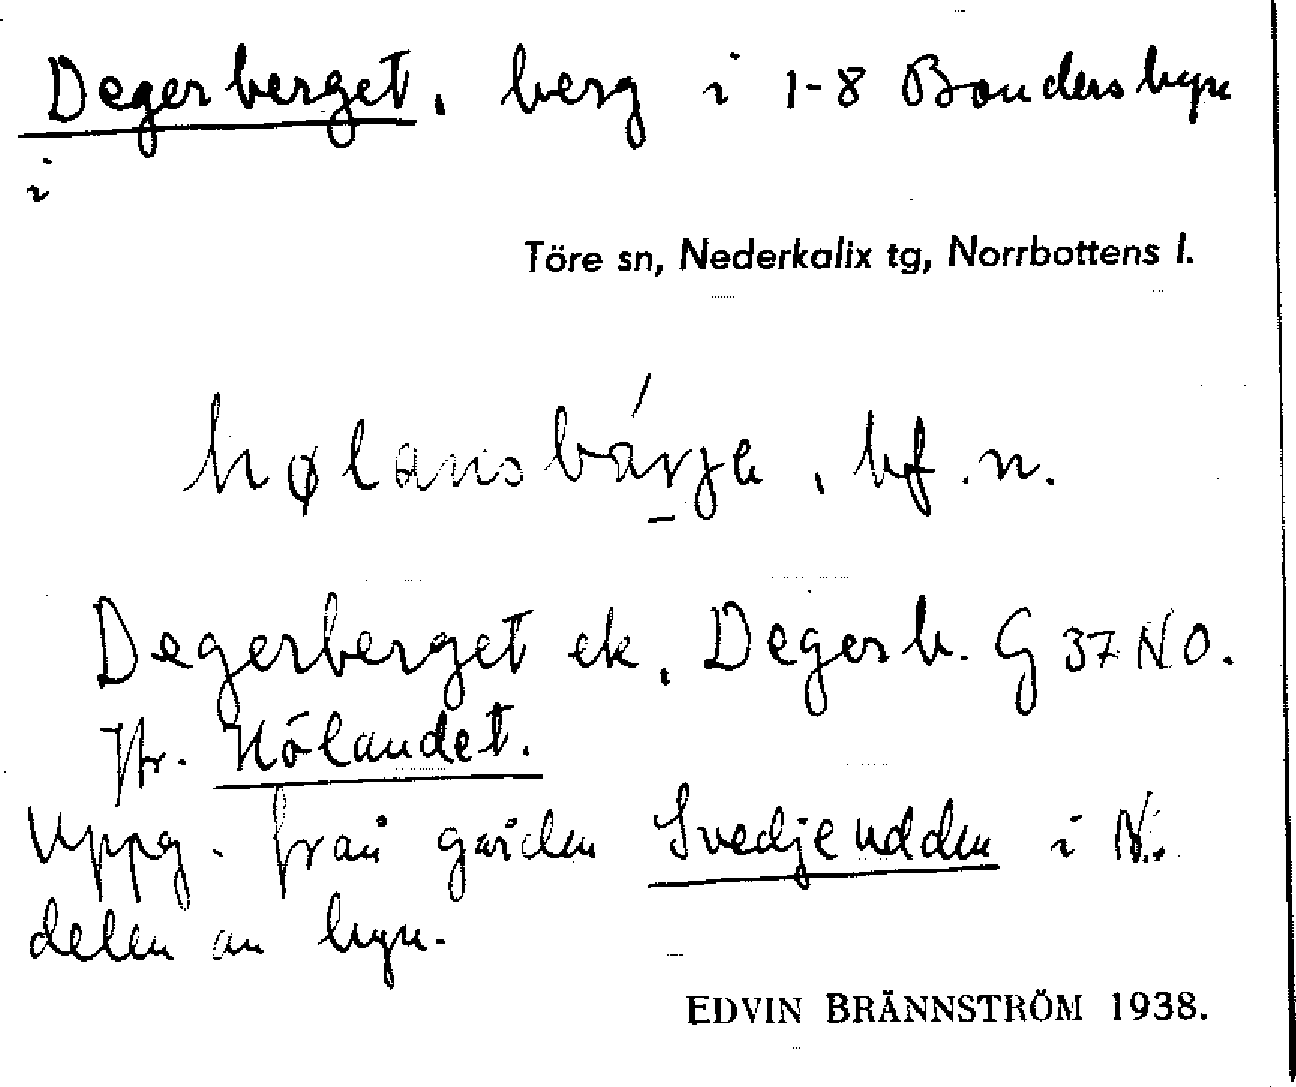 Degerberget, berg i 1-8 Bondersbyn
i
Töre sn, Nederkalix tg, Norrbottens l.
hølansbárje, bf. n.
Degerberget ek, Degerb. G 37 NO.
Jfr. Hölandet.
Uppg. från gården Svedjeudden i N.
delen av byn.
EDVIN BRÄNNSTRÖM 1938.